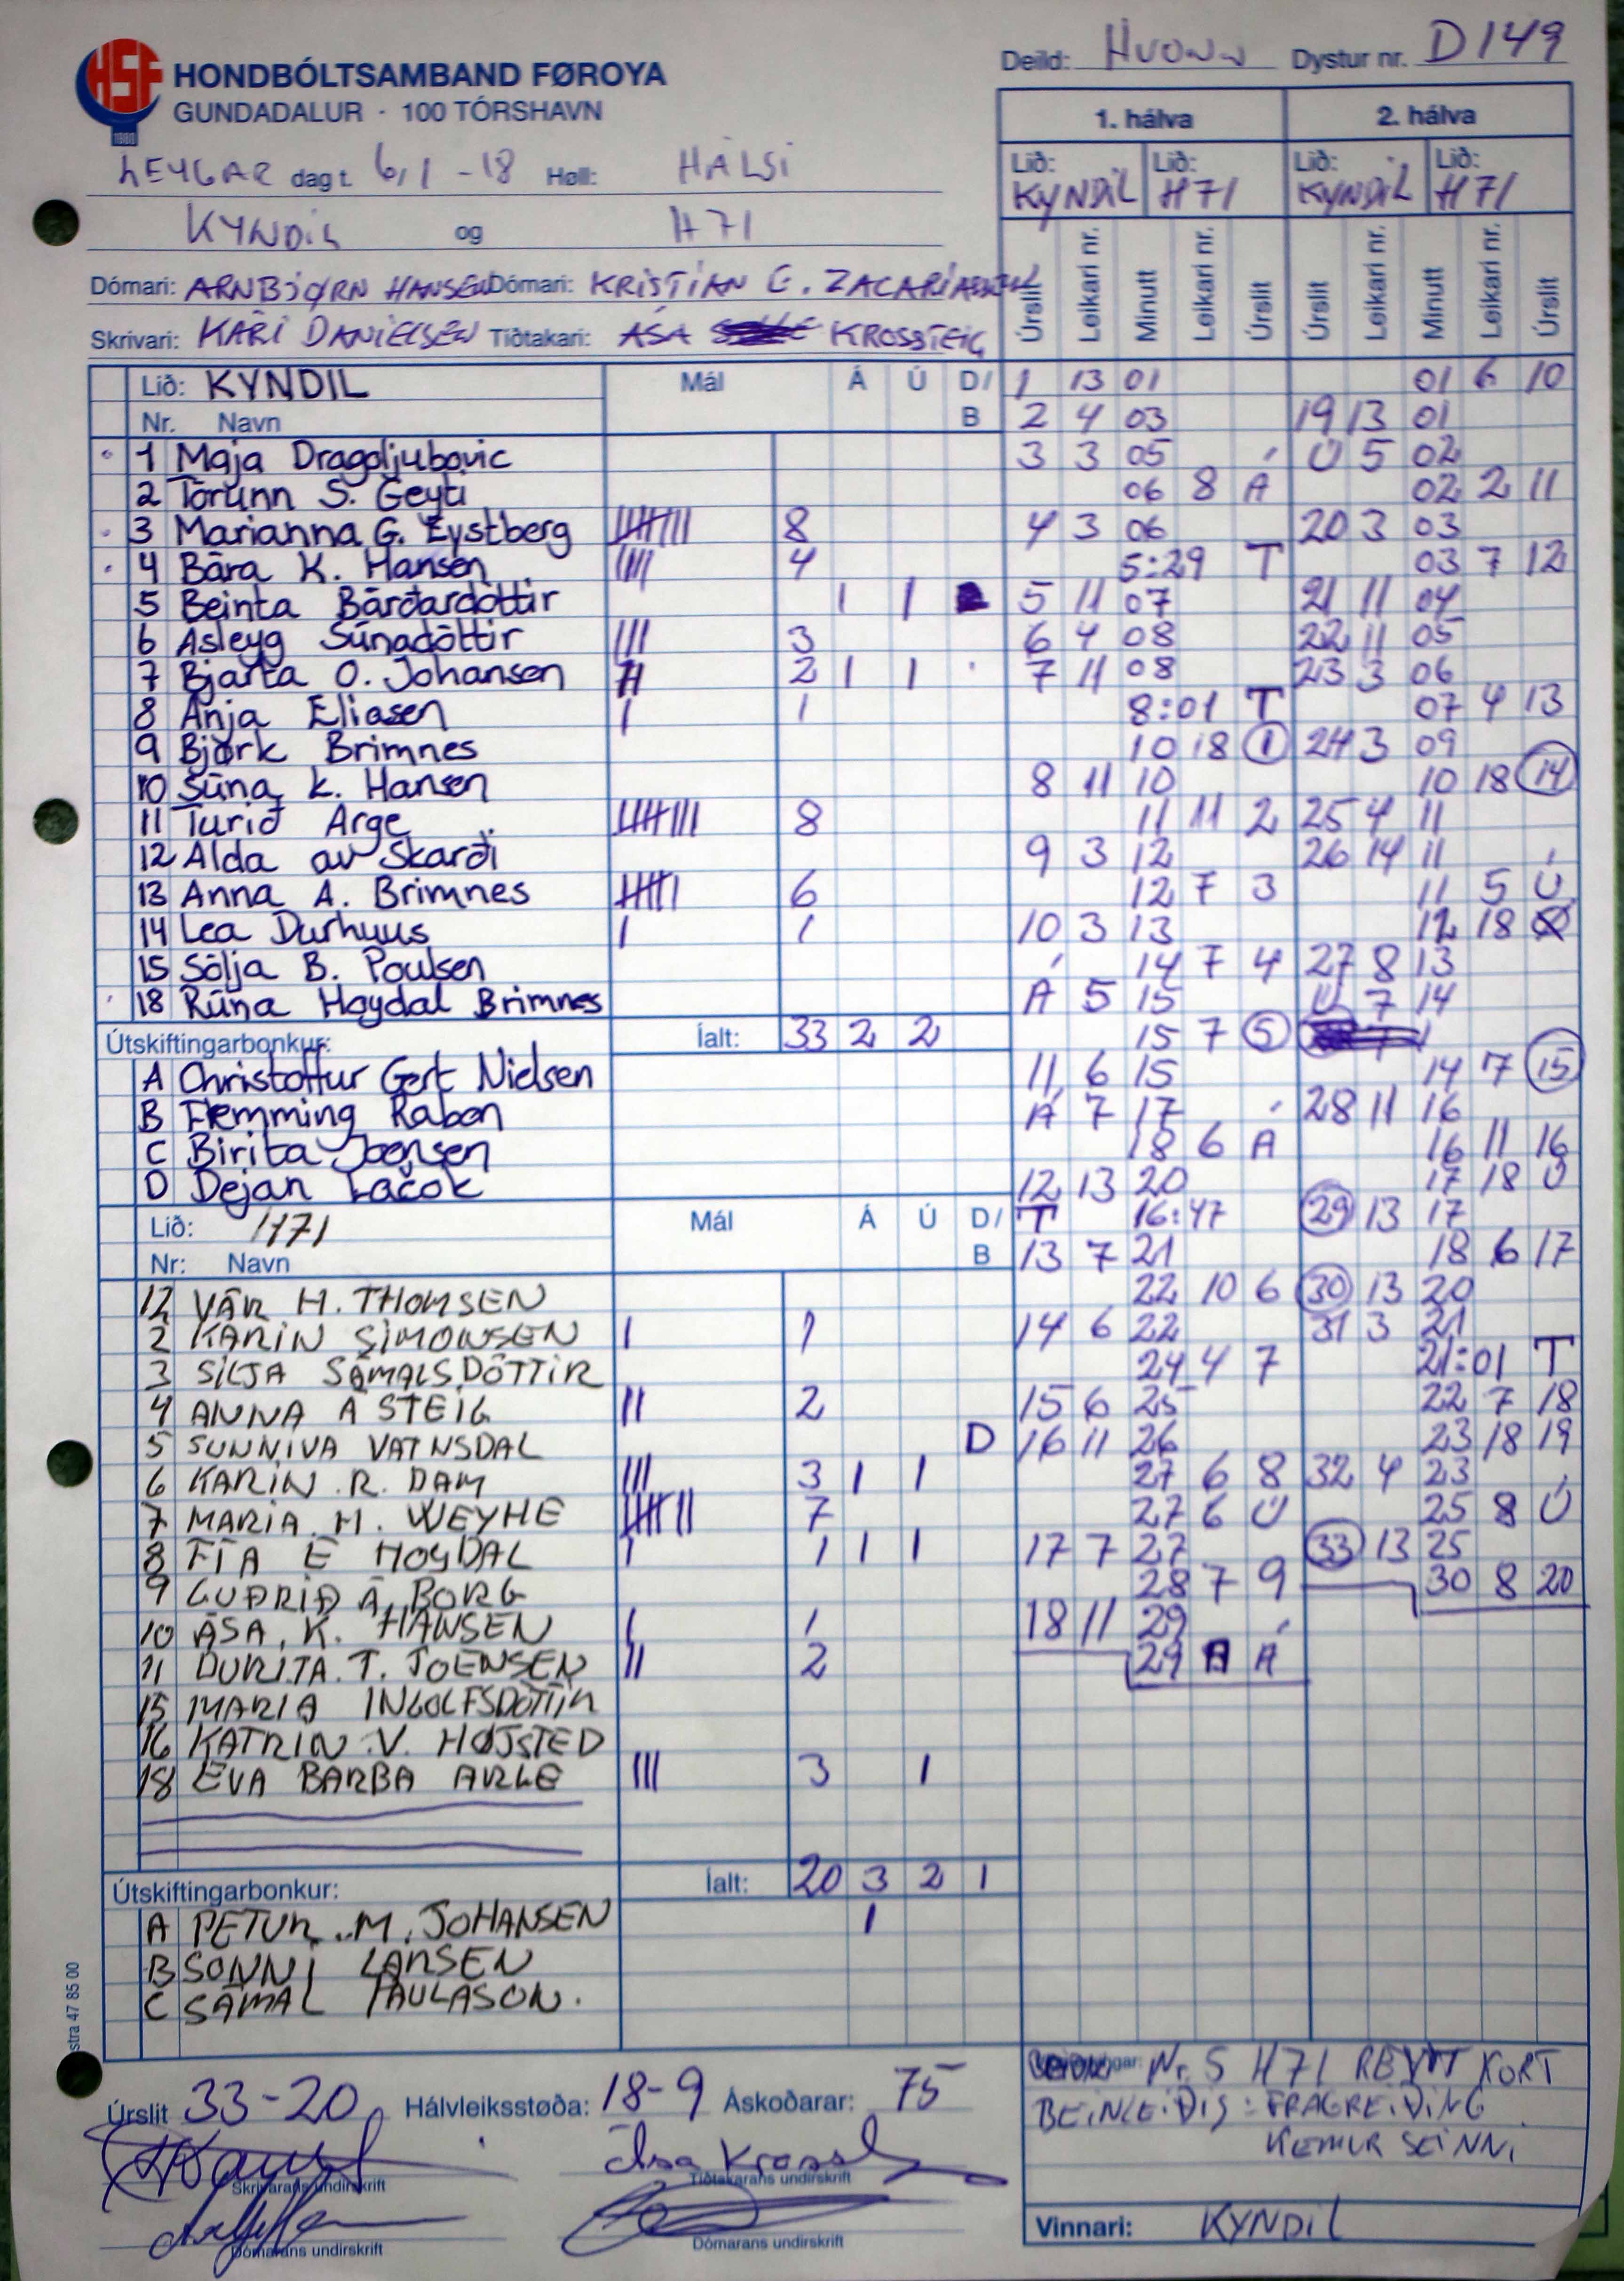 HSF
1980
HONDBÓLTSAMBAND FØROYA
GUNDADALUR · 100 TÓRSHAVN
Deild: HVONN Dystur nr. D149
LEYGAR dag t. 6/1-18 Høll: HÁLSI
KYNDIL og H71
Dómari: ARNBJØRN HANSEN Dómari: KRISTIAN G. ZACARIASEN
Skrivari: KÁRI DANIELSEN Tíðtakari: ÁSA KROSSTEIG
1. hálva 2. hálva
Lið: KYNDIL Lið: H71 Lið: KYNDIL Lið: H71
Úrslit Leikari nr. Minutt Leikari nr. Úrslit Úrslit Leikari nr. Minutt Leikari nr. Úrslit
Lið: KYNDIL Mál Á Ú D/B
Nr. Navn
1 Maja Dragoljubovic
2 Tórunn S. Geyti
3 Marianna G. Eystberg 8
4 Bára K. Hansen 4
5 Beinta Bárðardóttir 1 1
6 Asleyg Súnadóttir 3
7 Bjarta O. Johansen 2 1 1
8 Anja Eliasen 1
9 Bjørk Brimnes
10 Súna K. Hansen
11 Turið Arge 8
12 Alda av Skarði
13 Anna A. Brimnes 6
14 Lea Durhuus 1
15 Sólja B. Poulsen
18 Rúna Hoydal Brimnes
Útskiftingarbonkur: Íalt: 33 2 2
A Christoffur Gert Nielsen
B Flemming Raben
C Birita Joensen
D Dejan Lačok
Lið: H71 Mál Á Ú D/B
Nr: Navn
12 VÁR H. THOMSEN
2 KARIN SIMONSEN 1
3 SILJA SÁMALSDÓTTIR
4 ANNA Á STEIG 2
5 SUNNIVA VATNSDAL D
6 KARIN R. DAM 3 1 1
7 MARIA M. WEYHE 7
8 FÍA E HOYDAL 1 1 1
9 GUÐRIÐ Á BORG
10 ÁSA. K. HANSEN 1
11 DURITA. T. JOENSEN 2
15 MARIA INGOLFSDÓTTIR
16 KATRIN V. HØJSTED
18 EVA BARBA ARGE 3 1
Útskiftingarbonkur: Íalt: 20 3 2 1
A PETUR M. JOHANSEN 1
B SONNI LARSEN
C SÁMAL PAULASON.
1 13 01
2 4 03
3 3 05
06 8 Á
4 3 06
5:29 T
5 11 07
6 4 08
7 11 08
8:01 T
10 18 1
8 11 10
11 11 2
9 3 12
12 7 3
10 3 13
14 7 4
Á 5 15
15 7 5
11 6 15
Á 7 17
18 6 Á
12 13 20
T 16:47
13 7 21
22 10 6
14 6 22
24 4 7
15 6 25
16 11 26
27 6 8
27 6 Ú
17 7 27
28 7 9
18 11 29
29 A Á
01 6 10
19 13 01
Ú 5 02
02 2 11
20 3 03
03 7 12
21 11 04
22 11 05
23 3 06
07 4 13
24 3 09
10 18 14
25 4 11
26 14 11
11 5 Ú
12 18
27 8 13
Ú 7 14
14 7 15
28 11 16
16 11 16
17 18 Ú
29 13 17
18 6 17
30 13 20
31 3 21
21:01 T
22 7 18
23 18 19
32 4 23
25 8 Ú
33 13 25
30 8 20
stra 47 85 00
Úrslit 33-20 Hálvleiksstøða: 18-9 Áskoðarar: 75
Nr. 5 H71 REYTT KORT
BEINLEIÐIS: FRAGREIÐING
KEMUR SEINNI
Ása Kross
Skrivarans undirskrift Tíðtakarans undirskrift
Dómarans undirskrift Dómarans undirskrift
Vinnari: KYNDIL